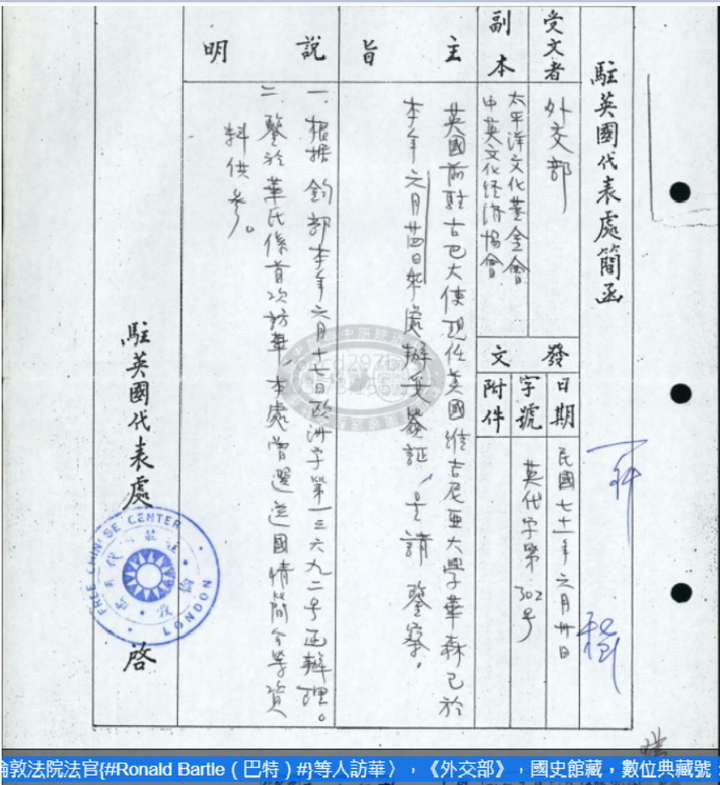 駐英國代表處簡函
受文者
外交部
副本
太平洋文化基金會
中英文化經濟協會
發文
日期
民國七十一年六月卅日
字號
英代字第302號
附件
主旨
英國前駐古巴大使現任英國維吉尼亞大學華森已於
本年六月廿四日來處辦妥簽証,呈請鑒察。
說明
一、根據鈞部本年六月十七日歐洲字第一三六九二号函辦理。
二、鑒於華氏係首次訪華,本處曾選送國情簡介等資
料供參。
駐英國代表處 啓
FREE CHINESE CENTER
LONDON
倫敦法院法官{#Ronald Bartle(巴特)#}等人訪華〉,《外交部》,國史館藏,數位典藏號: